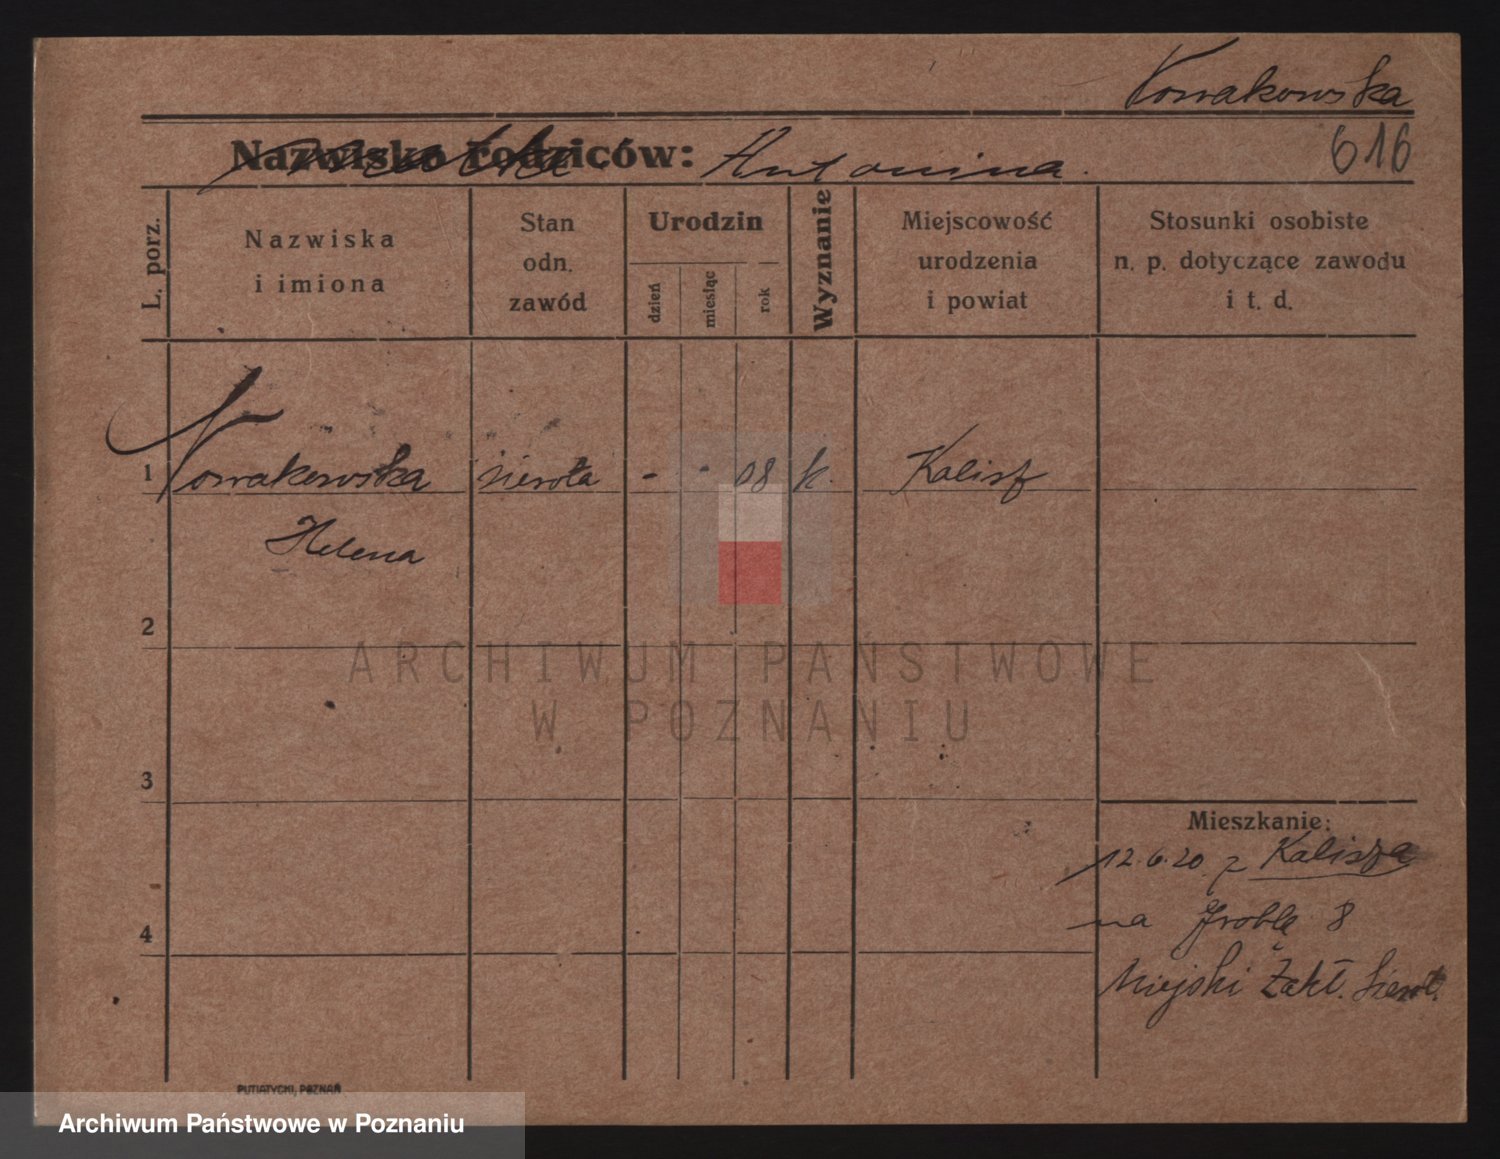 Nowakowska
616
Nazwisko rodziców: Antonina.
L. porz.
Nazwiska
i imiona
Stan
odn.
zawód
Urodzin
dzień
miesiąc
rok
Wyznanie
Miejscowość
urodzenia
i powiat
Stosunki osobiste
n. p. dotyczące zawodu
i t. d.
1 Nowakowska sierota - - 08 k. Kalisz
Helena
2
3
4
Mieszkanie:
12.6.20 z Kalisza
na Groblę 8
Miejski Zakł. Sierot.
PUTIATYCKI, POZNAŃ
ARCHIWUM PAŃSTWOWE
W POZNANIU
Archiwum Państwowe w Poznaniu